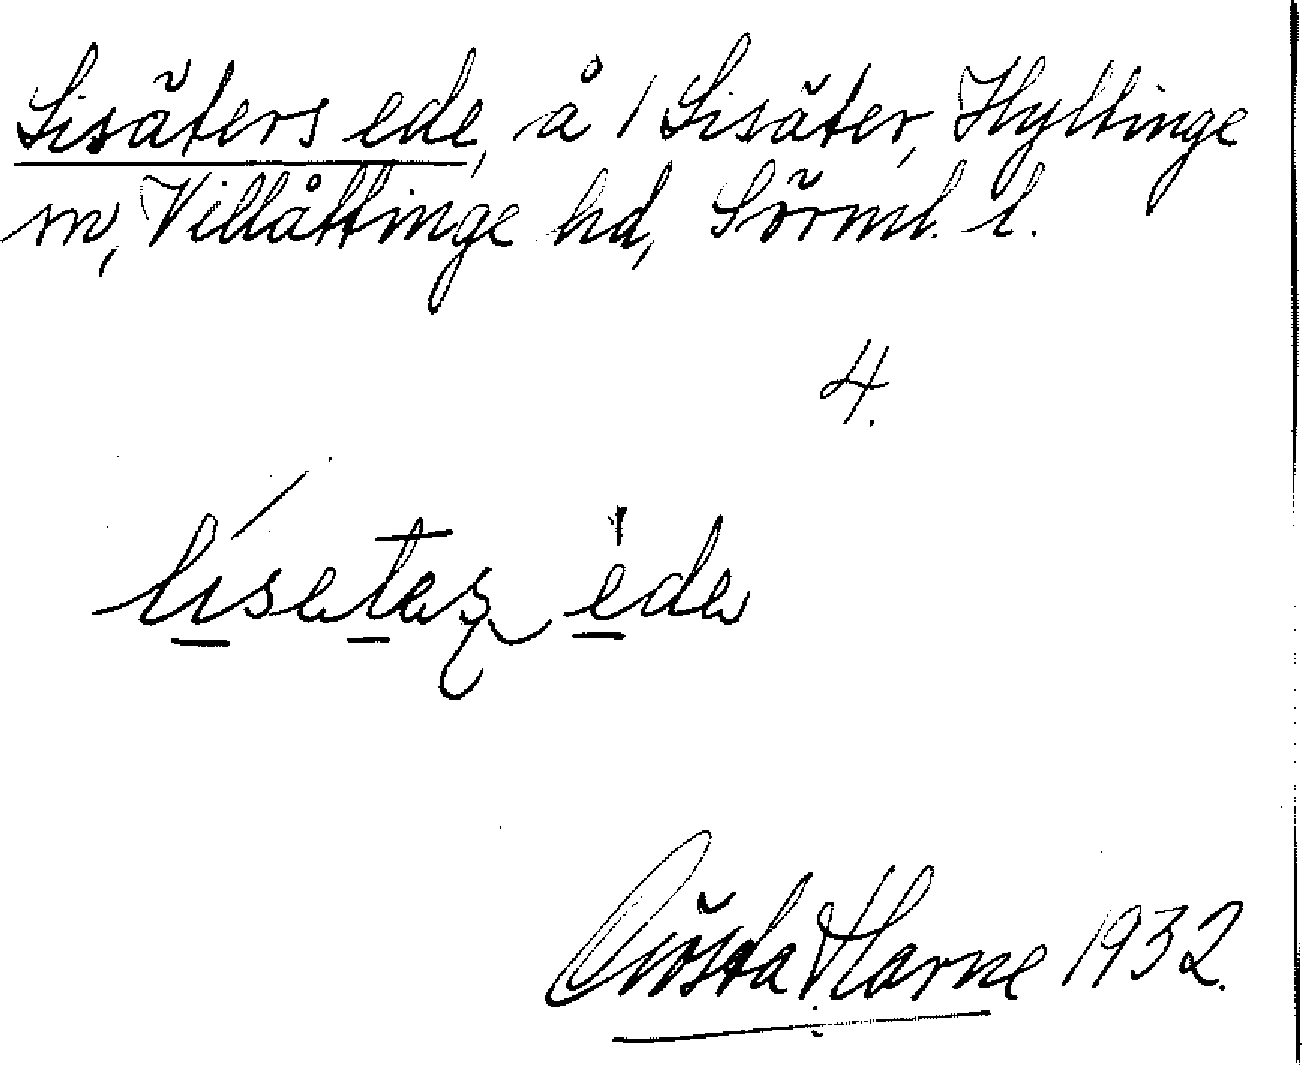 Lisäters ede, å / Lisäter, Hyltinge
sn, Villåttinge hd, Sörml. l.
4.
lisetaş eda
Gösta Harne 1932.